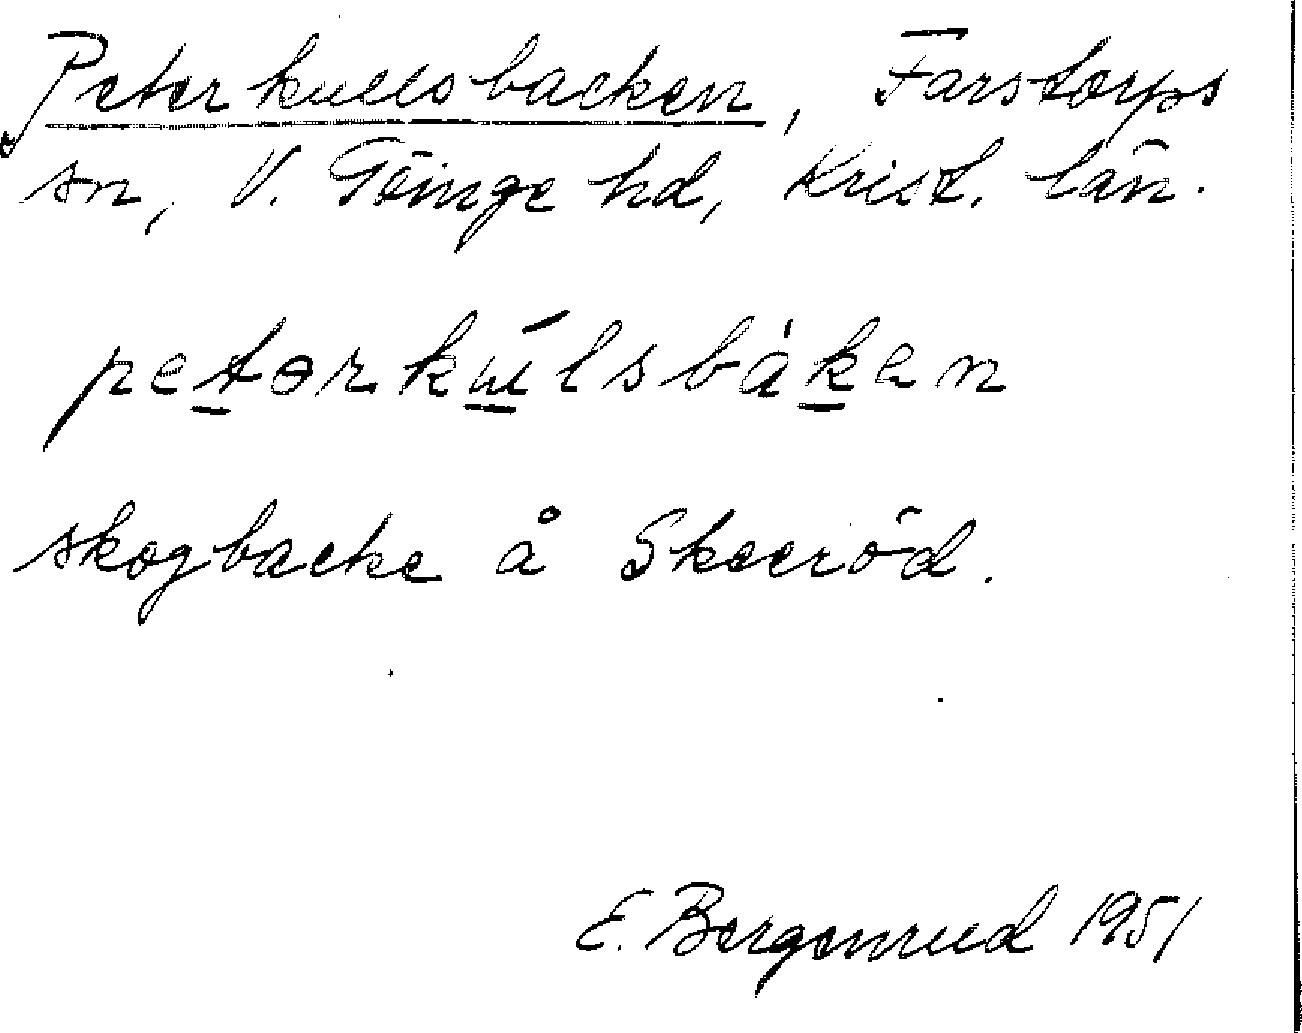 Peterkullsbacken, Farstorps
sn, V. Göinge hd, Krist. län.
petərkúlsbàkan
skogbacke å Skeeröd.
E. Bergenrud 1951